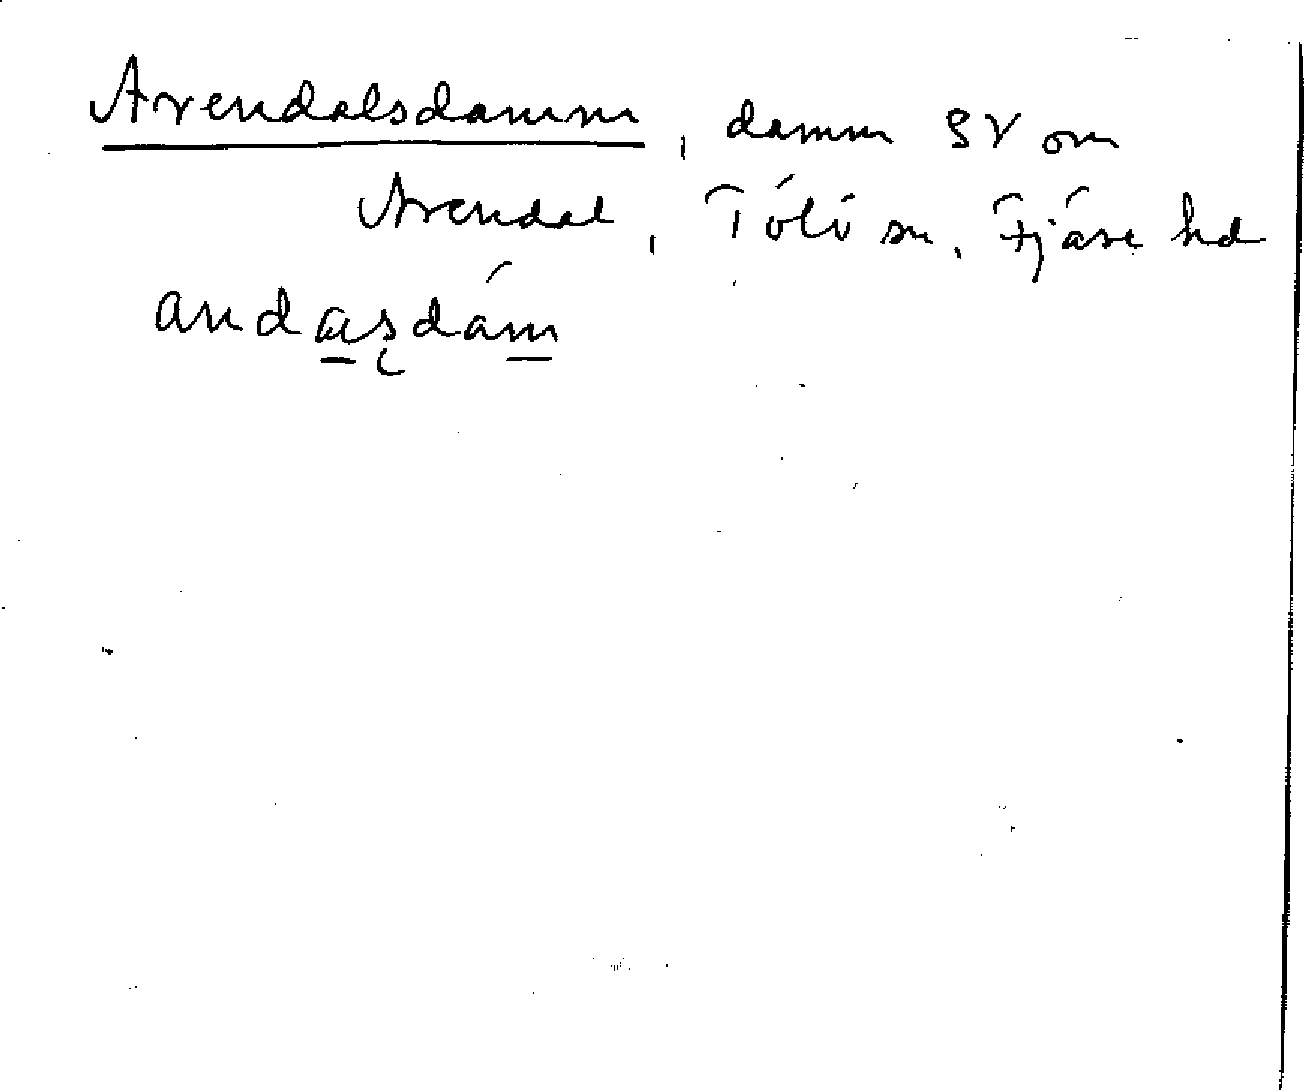 Arendalsdamm, damm SV om
Arendal, Tölö sn, Fjäre hd
andasdám